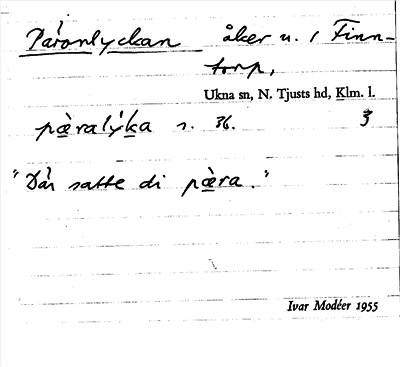 Päronlyckan åker u. / Finn-
torp,
Ukna sn, N. Tjusts hd, Klm. l.
pæ̀ralýka s. 36. 3
"Där satte di pæ̀ra."
Ivar Modéer 1955